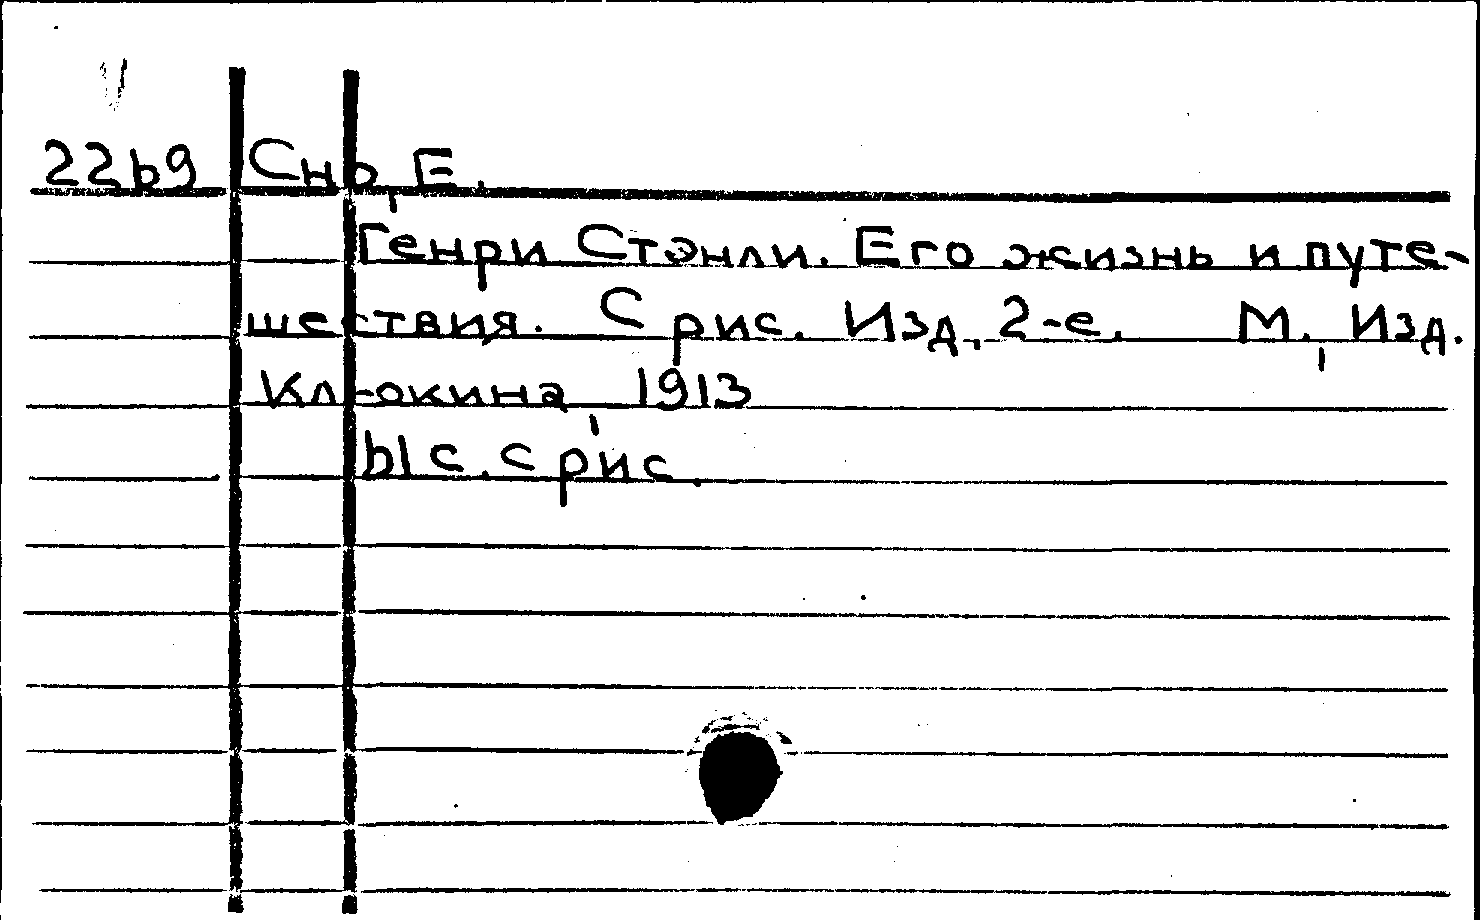 2269 Сно, Е.
Генри Стэнли. Его жизнь и путе-
шествия. С рис. Изд. 2-е. М., Изд.
Клюкина, 1913
61 с. с рис.